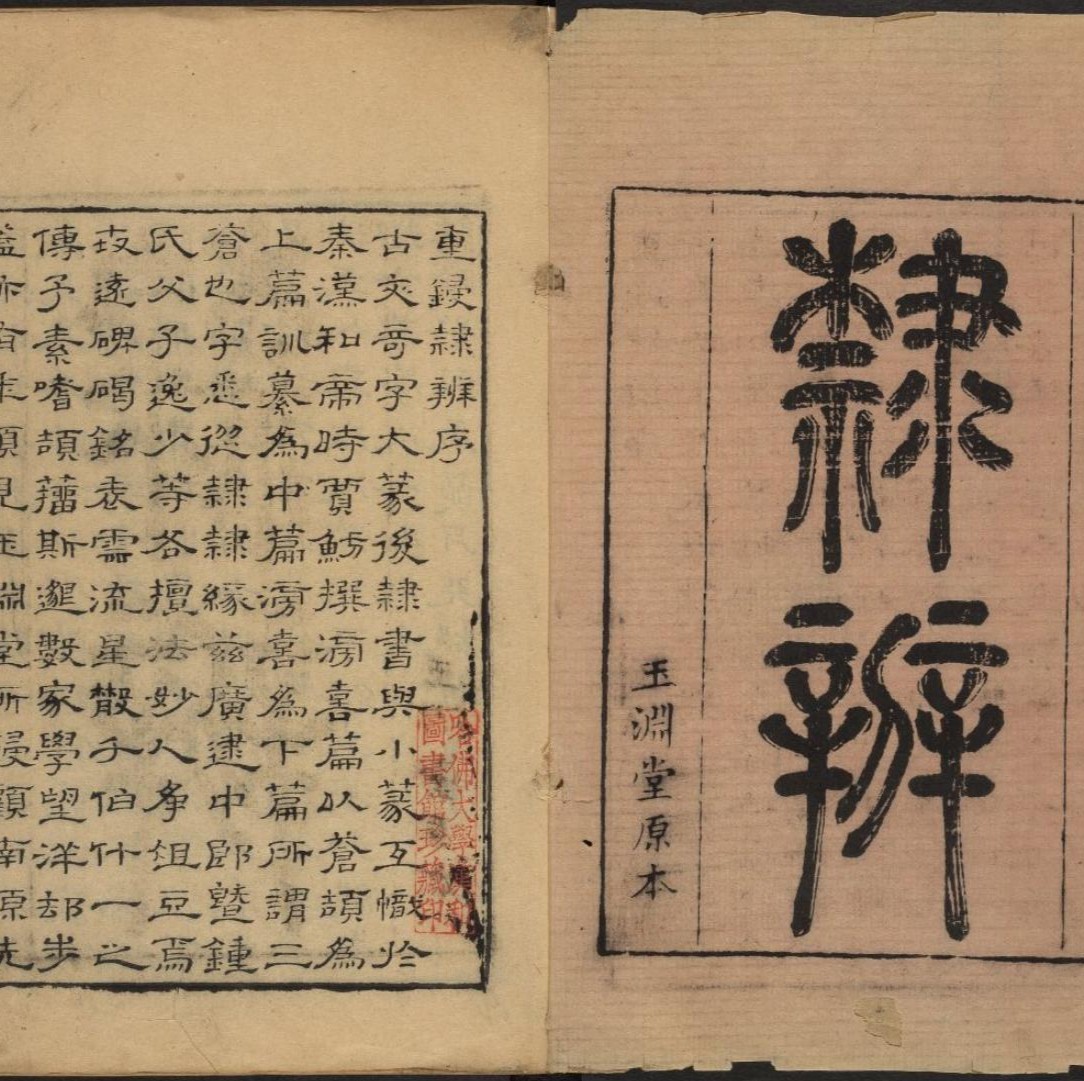 隸辨
玉淵堂原本
重鋟隸辨序
古文奇字大篆後隸書與小篆互幟於
秦漢和帝時賈魴撰滂喜篇以蒼頡為
上篇訓纂為中篇滂喜為下篇所謂三
蒼也字悉從隸隸緣茲廣逮中郎暨鍾
氏父子逸少等各擅法妙人爭俎豆焉
遠碑碣銘表流星散千伯什一之
傳予素嗜頡籀斯邈數家學望洋却步
亦有年頃見玉淵堂所鋟顧南原先
哈佛大學漢和
圖書館珍藏印